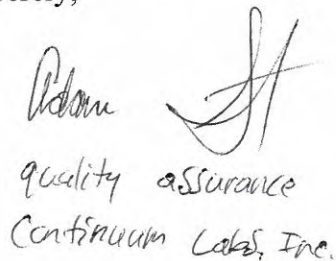 Adam
quality assurance
Continuum Labs, Inc.